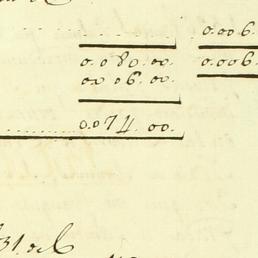 0.006.
0.080.00. 0.006.
00 06.00.
0.074.00.
31 de